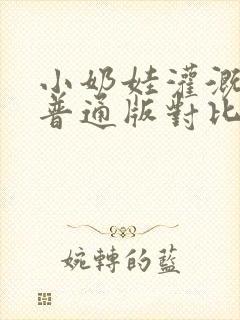 小奶娃灌溉
普通版對比
婉轉的藍